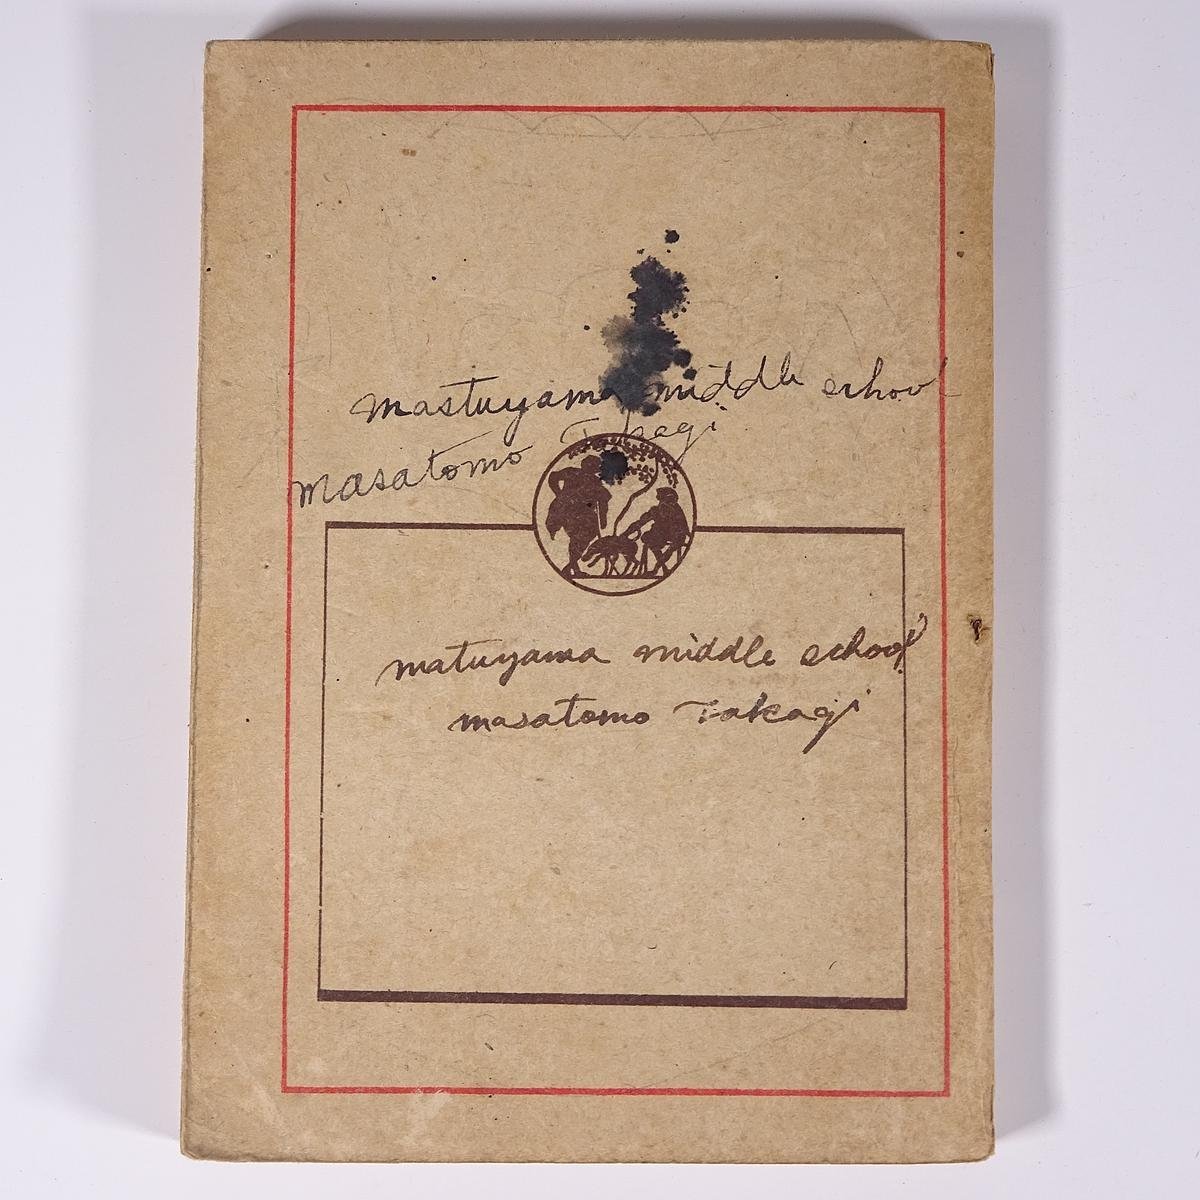 mastuyama middle erhool
masatomo Takagi
matuyama middle school
masatomo Takagi